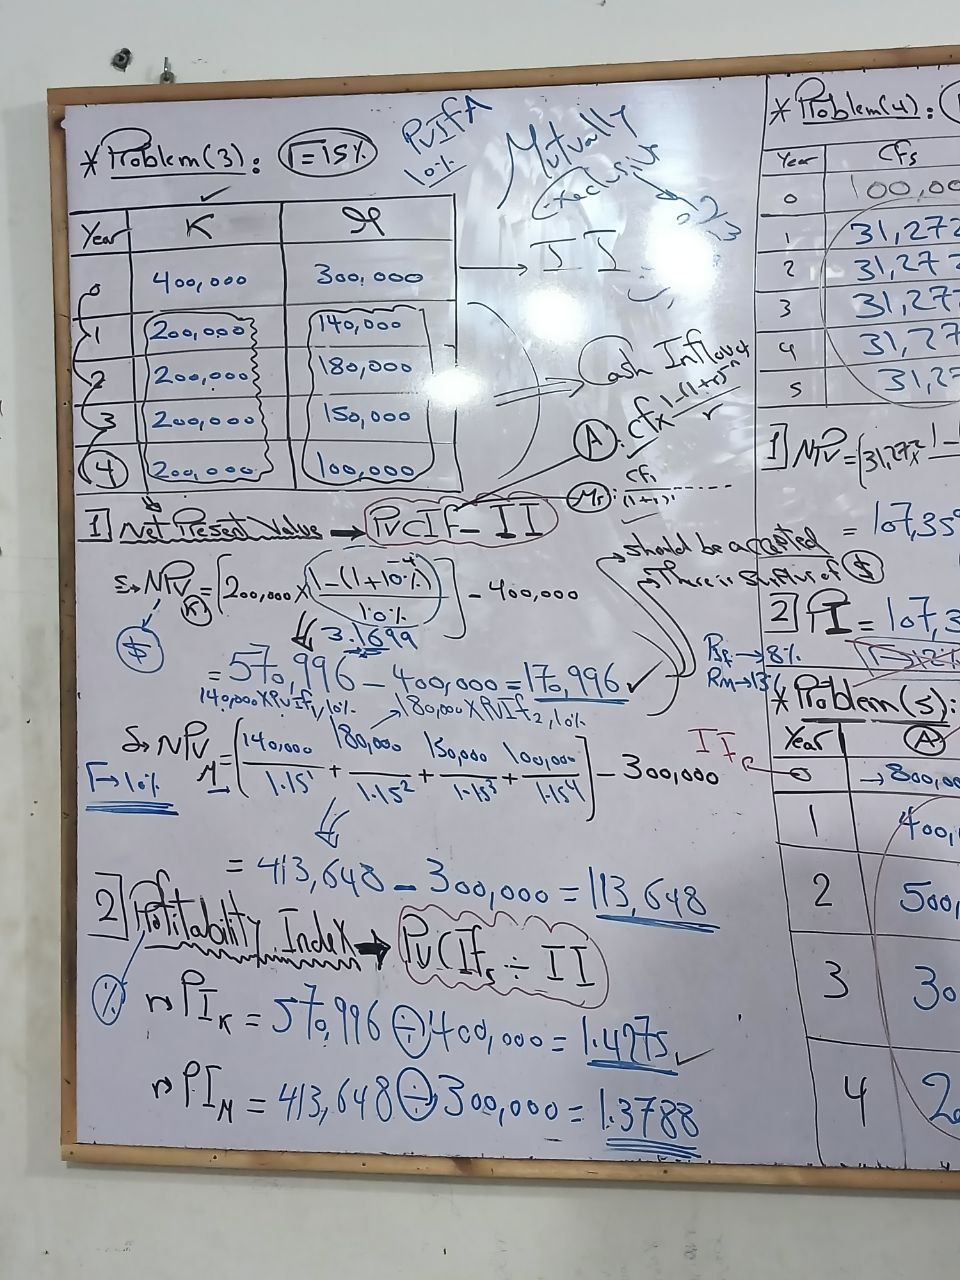 * Problem(3): r=15%
PVIFA
10%
Mutually
exclusive
Year K M
0 400,000 300,000 → II
1 200,000 140,000
2 200,000 180,000
3 200,000 150,000
4 200,000 100,000
Cash Inflow
A: CF x 1-(1+r)^-n / r
1] Net Present Value → PVCIF - II
→ should be accepted
→ There is surplus of $
NPV K = [200,000 x (1-(1+10%)^-4 / 10%)] - 400,000
$
3.1699
= 570,996 - 400,000 = 170,996 ✓
140,000 x PVIF1,10% 180,000 x PVIF2,10%
NPV M = [140,000/1.15^1 + 180,000/1.15^2 + 150,000/1.15^3 + 100,000/1.15^4] - 300,000
r→10%
= 413,648 - 300,000 = 113,648
2] Profitability Index → PVCIFs ÷ II
%
PI K = 570,996 ÷ 400,000 = 1.4275 ✓
PI M = 413,648 ÷ 300,000 = 1.3788
* Problem(4):
Year CFs
0 100,00
1 31,272
2 31,27
3 31,27
4 31,27
5 31,2
1] NPV = [31,272 x 1-
= 107,35
2] PI = 107,3
RF → 8%
RM → 13%
* Problem(5):
Year A
0 → 800,00
1 400,
2 500,
3 30
4 2